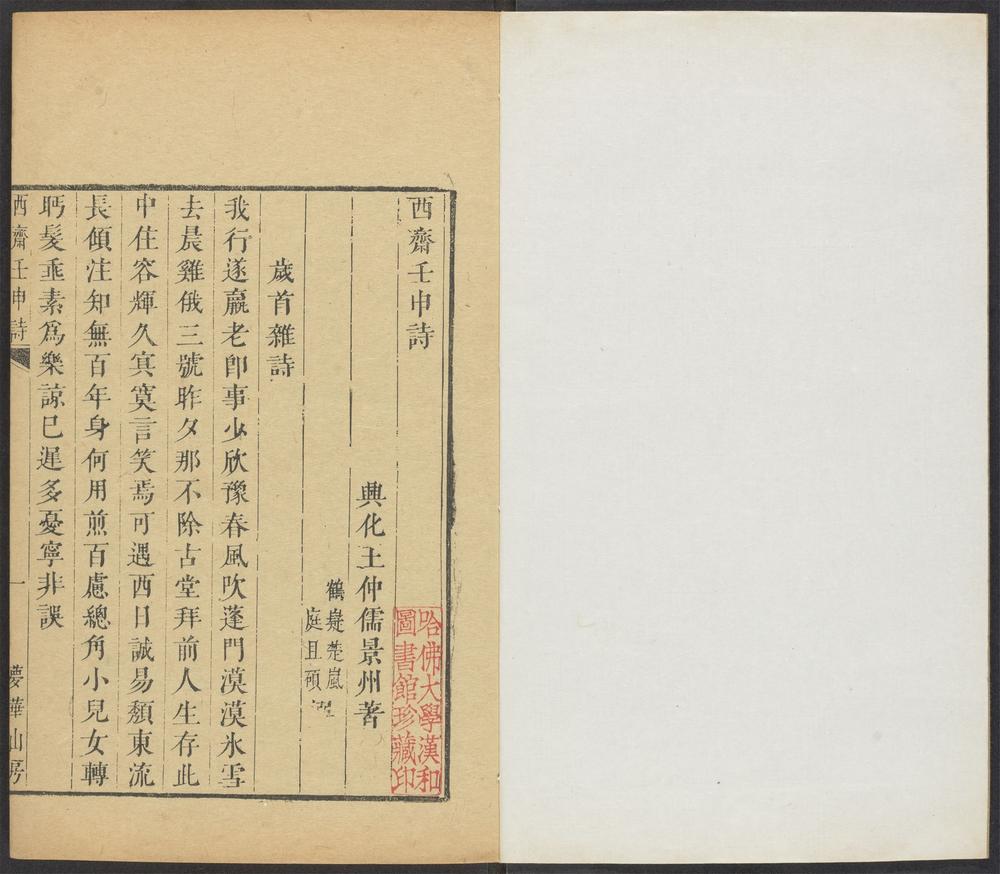 西齋壬申詩
興化王仲儒景州著
鶴嶷楚嵐
庭且碩
歲首雜詩
我行遂羸老卽事少欣豫春風吹蓬門漠漠氷雪
去晨雞俄三號昨夕那不除古堂拜前人生存此
中住容輝久寘寞言笑焉可遇西日誠易頽東流
長傾注知無百年身何用煎百慮總角小兒女轉
眄髮垂素爲樂諒已遲多憂寧非誤
西齋壬申詩
一
夢華山房
哈佛大學漢和
圖書館珍藏印